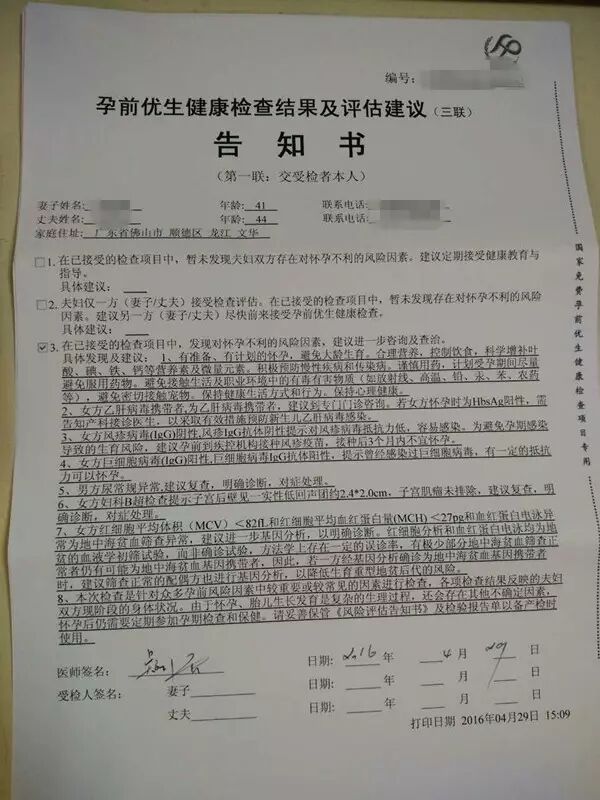 编号:
孕前优生健康检查结果及评估建议(三联)
告 知 书
(第一联:交受检者本人)
妻子姓名: 年龄: 41 联系电话:
丈夫姓名: 年龄: 44 联系电话:
家庭住址: 广东省佛山市 顺德区 龙江 文华
1. 在已接受的检查项目中，暂未发现夫妇双方存在对怀孕不利的风险因素。建议定期接受健康教育与
指导。
具体建议:
2. 夫妇仅一方（妻子/丈夫）接受检查评估。在已接受的检查项目中，暂未发现存在对怀孕不利的风险
因素。建议另一方（妻子/丈夫）尽快前来接受孕前优生健康检查。
具体建议:
3. 在已接受的检查项目中，发现对怀孕不利的风险因素，建议进一步咨询及查治。
具体发现及建议: 1、有准备、有计划的怀孕，避免大龄生育。合理营养，控制饮食，科学增补叶
酸、碘、铁、钙等营养素及微量元素。积极预防慢性疾病和传染病。谨慎用药，计划受孕期间尽量
避免服用药物。避免接触生活及职业环境中的有毒有害物质(如放射线、高温、铅、汞、苯、农药
等)，避免密切接触宠物。保持健康生活方式和行为。保持心理健康。
2、女方乙肝病毒携带者,为乙肝病毒携带者，建议到专门门诊咨询。若女方怀孕时为HbsAg阳性，需
告知产科接诊医生，以采取有效措施预防新生儿乙肝病毒感染。
3、女方风疹病毒(IgG)阴性,风疹IgG抗体阴性提示对风疹病毒抵抗力低，容易感染。为避免孕期感染
导致的生育风险，建议孕前到疾控机构接种风疹疫苗，接种后3个月内不宜怀孕。
4、女方巨细胞病毒(IgG)阳性,巨细胞病毒IgG抗体阳性，提示曾经感染过巨细胞病毒，有一定的抵抗
力可以怀孕。
5、男方尿常规异常,建议复查，明确诊断，对症处理。
6、女方妇科B超检查提示子宫后壁见一实性低回声团约2.4*2.0cm，子宫肌瘤未排除，建议复查，明
确诊断，对症处理。
7、女方红细胞平均体积（MCV）<82fL和红细胞平均血红蛋白量(MCH) <27pg和血红蛋白电泳异
常为地中海贫血筛查异常，建议进一步基因分析，以明确诊断。红细胞分析和血红蛋白电泳均为地
中海贫血的血液学初筛试验，而非确诊试验，方法学上存在一定的误诊率，有极少部分地中海贫血筛查正
常者仍有可能为地中海贫血基因携带者，因此，若一方经基因分析确诊为地中海贫血基因携带者
时，建议筛查正常的配偶方也进行基因分析，以降低生育重型地贫后代的风险。
8、本次检查是针对众多孕前风险因素中较重要或较常见的因素进行检查，各项检查结果反映的夫妇
双方现阶段的身体状况。由于怀孕、胎儿生长发育是复杂的生理过程，还会存在其他不确定因素，
怀孕后仍需要定期参加孕期检查和保健。请妥善保管《风险评估告知书》及检验报告单以备产检时
使用。
医师签名: 日期: 2016 年 4 月 29 日
受检人签名: 妻子 日期: 年 月 日
丈夫 日期: 年 月 日
打印日期 2016年04月29日 15:09
国家免费孕前优生健康检查项目专用